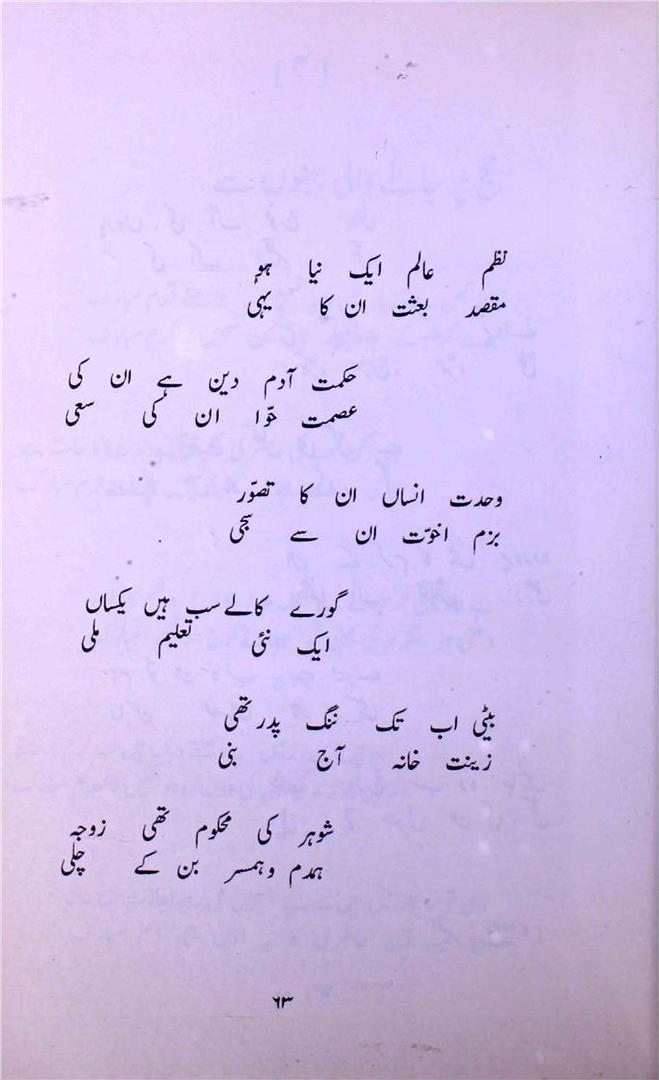 نظم عالم ایک نیا ہو
مقصد بعثت ان کا یہی
حکمت آدم دین ہے ان کی
عصمت حوّا ان کی سعی
وحدت انساں ان کا تصوّر
بزم اخوّت ان سے سجی
گورے کالے سب ہیں یکساں
ایک نئی تعلیم ملی
بیٹی اب تک ننگ پدر تھی
زینت خانہ آج بنی
شوہر کی محکوم تھی زوجہ
ہمدم و ہمسر بن کے چلی
۶۳